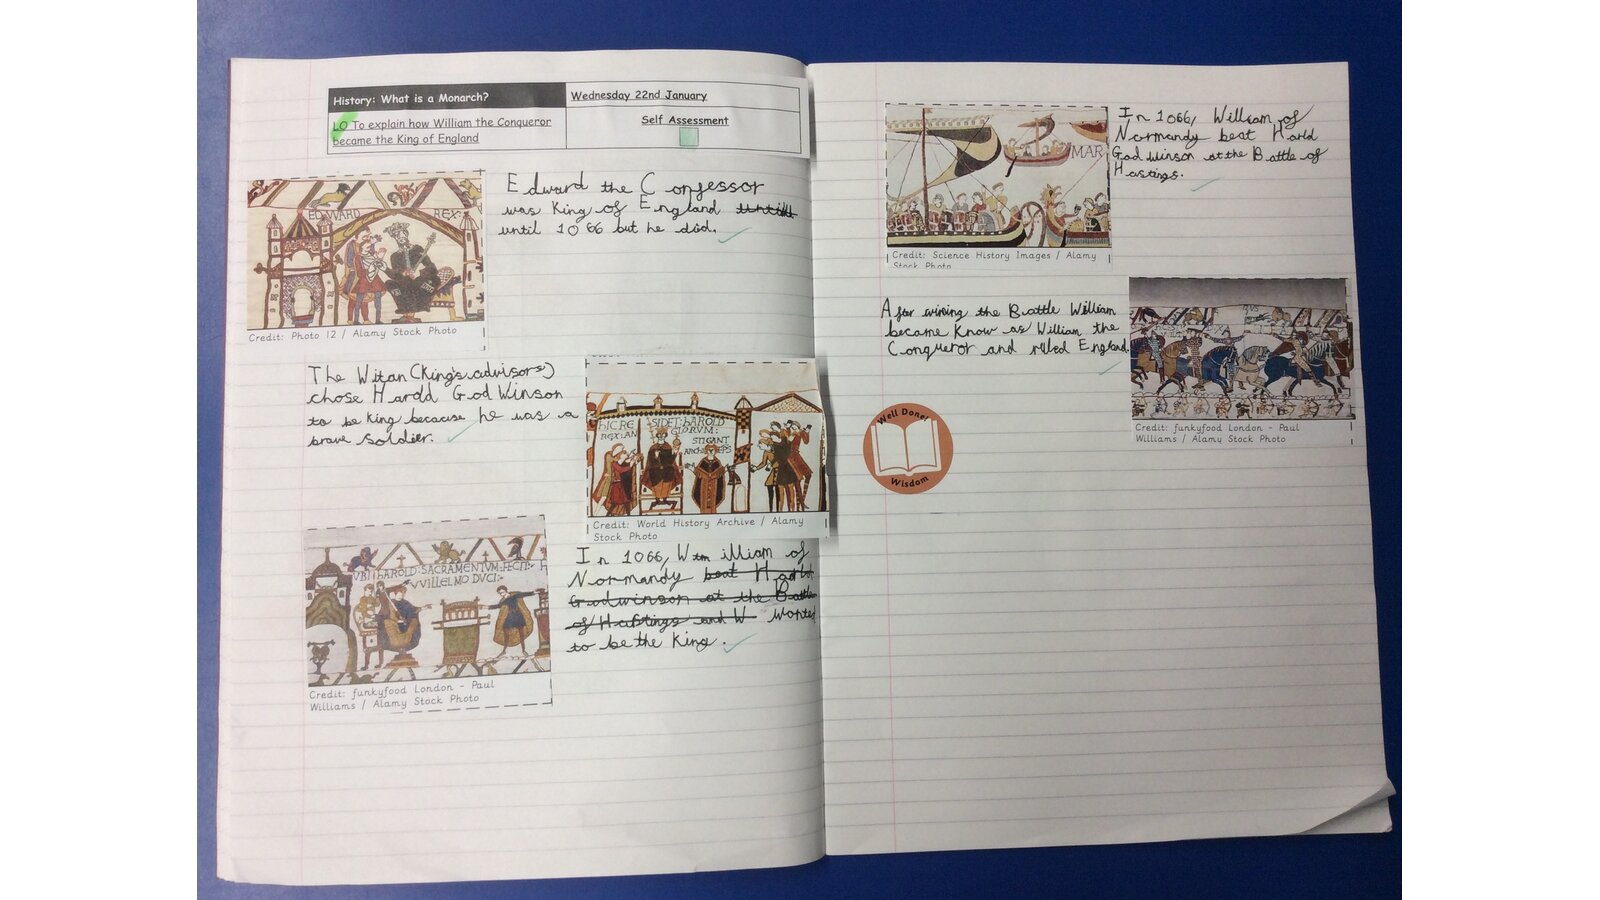 History: What is a Monarch?
Wednesday 22nd January
LO To explain how William the Conqueror
became the King of England
Self Assessment
EDWARD REX:
Credit: Photo 12 / Alamy Stock Photo
Edward the Confessor
was King of England untill
until 1066 but he did.
The Witan (King's advisors)
chose Harold God Winson
to be King because he was a
brave soldier.
HIC RE SIDET: HAROLD
REX: AN GLORVM:
STIGANT
ARCHIEPS
Credit: World History Archive / Alamy
Stock Photo
VBI HAROLD: SACRAMENTVM: FECIT:
VVILLELMO DVCI:
Credit: funkyfood London - Paul
Williams / Alamy Stock Photo
In 1066, William of
Normandy beat Harold
Godwinson at the Battle
of Hastings and W wanted
to be the King.
MAR
Credit: Science History Images / Alamy
Stock Photo
In 1066, William of
Normandy beat Harld
God winson at the Battle of
Hastings.
After wining the Battle William
became Know as William the
Conqueror and ruled England.
Credit: funkyfood London - Paul
Williams / Alamy Stock Photo
Well Done!
Wisdom